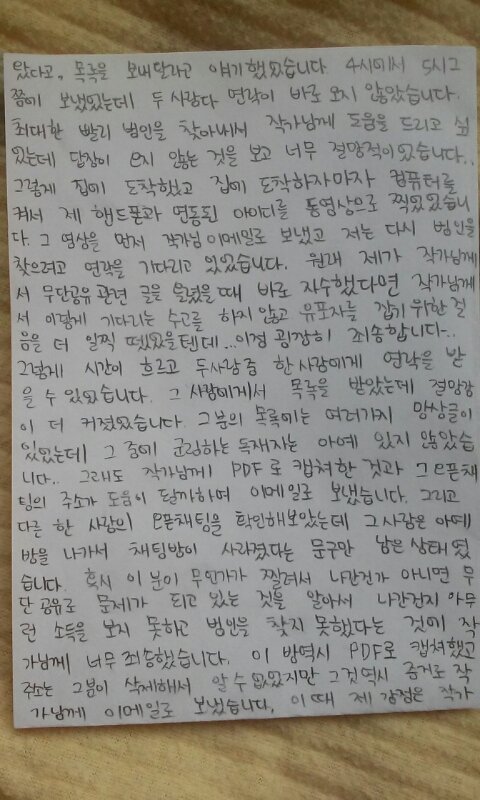 왔다고, 목록을 보내달라고 얘기했었습니다. 4시에서 5시그
쯤에 보냈었는데 두 사람다 연락이 바로 오지 않았습니다.
최대한 빨리 범인을 찾아내서 작가님께 도움을 드리고 싶
었는데 답장이 오지 않는 것을 보고 너무 절망적이었습니다..
그렇게 집에 도착했고 집에 도착하자마자 컴퓨터를
켜서 제 핸드폰과 연동된 아이디를 동영상으로 찍었었습니
다. 그 영상을 먼저 작가님 이메일로 보냈고 저는 다시 범인을
찾으려고 연락을 기다리고 있었습니다. 원래 제가 작가님께
서 무단공유 관련 글을 올렸을 때 바로 자수했다면 작가님께
서 이렇게 기다리는 수고를 하지 않고 유포자를 잡기 위한 걸
음을 더 일찍 뗐었을텐데..이점 굉장히 죄송합니다..
그렇게 시간이 흐르고 두사람중 한 사람에게 연락을 받
을 수 있었습니다. 그 사람에게서 목록을 받았는데 절망감
이 더 커졌었습니다. 그 분의 목록에는 여러가지 망상글이
있었는데 그 중에 군림하는 독재자는 아예 있지 않았습
니다.. 그래도 작가님께 PDF로 캡쳐한 것과 그 오픈채
팅의 주소가 도움이 될까하여 이메일로 보냈습니다. 그리고
다른 한 사람의 오픈채팅을 확인해보았는데 그 사람은 아예
방을 나가서 채팅방이 사라졌다는 문구만 남은 상태였
습니다. 혹시 이 분이 무언가가 찔려서 나간건가 아니면 무
단 공유로 문제가 되고 있는 것을 알아서 나간건지 아무
런 소득을 보지 못하고 범인을 찾지 못했다는 것에 작
가님께 너무 죄송했습니다. 이 방역시 PDF로 캡쳐했고
주소는 그분이 삭제해서 알 수 없었지만 그것역시 증거로 작
가님께 이메일로 보냈습니다. 이때 제 감정은 작가